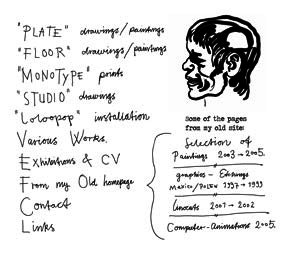 "PLATE" drawings/paintings
"FLOOR" drawings/paintings
"MONOTYPE" prints
"STUDIO" drawings
"Loloopop" installation
Various Works.
Exhibitions & CV
From my Old homepage
Contact
Links
Some of the pages
from my old site:
Selection of
Paintings 2003→2005.
graphics - Etchings
Mexico/Polen 1997→1999
Linocuts 2001→2002
Computer-Animations 2005.